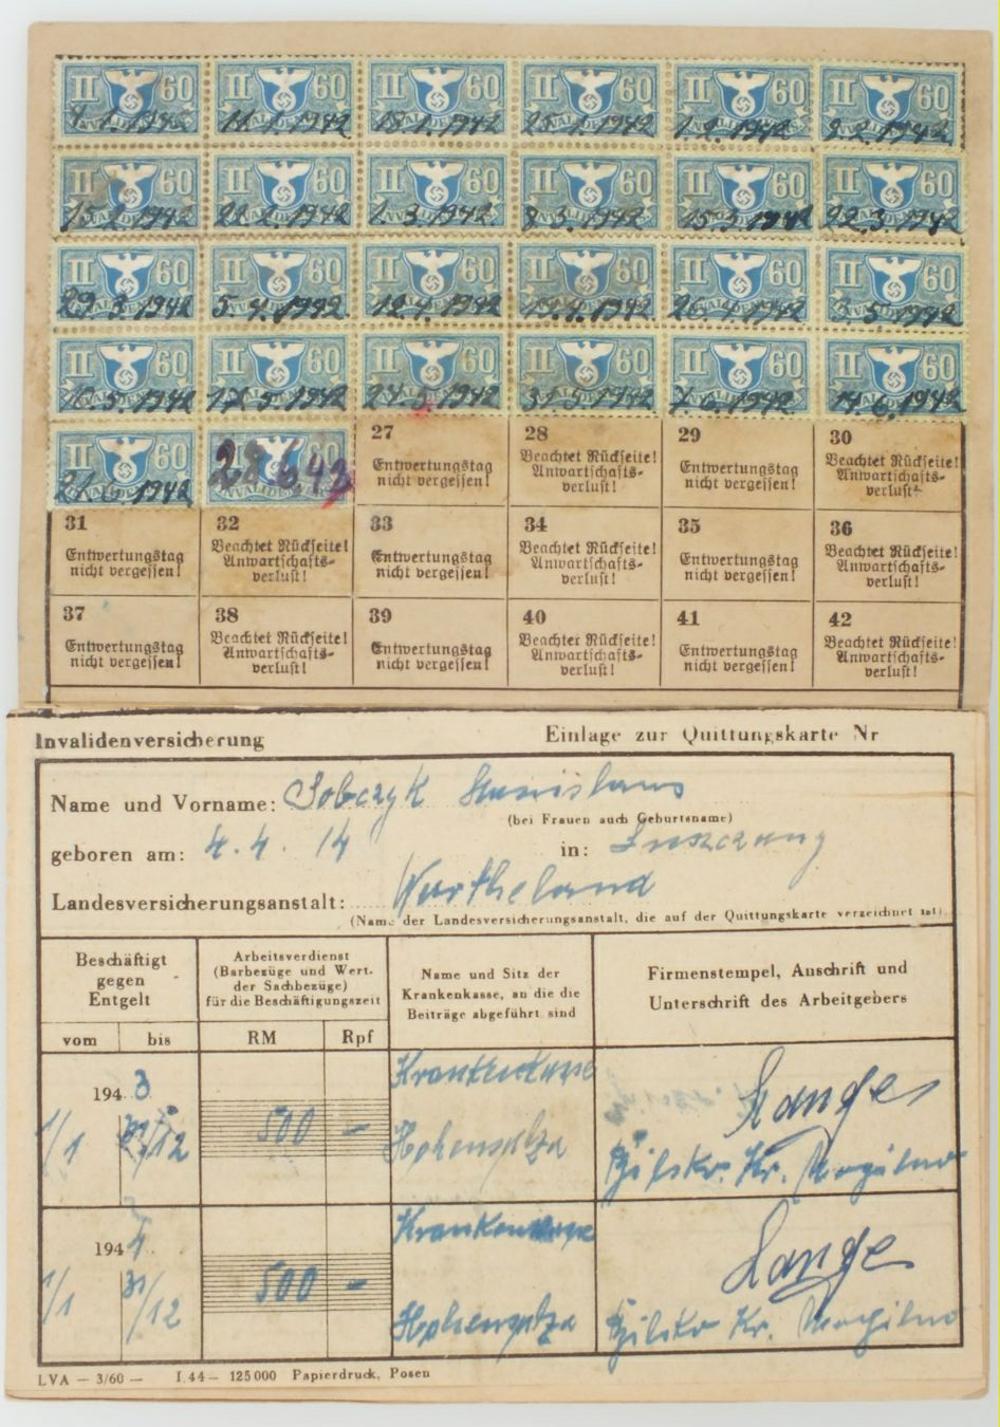 II 60 II 60 II 60 II 60 II 60 II 60
4.1.1942 11.1.1942 18.1.1942 25.1.1942 1.2.1942 9.2.1942
II 60 II 60 II 60 II 60 II 60 II 60
15.2.1942 22.2.1942 1.3.1942 8.3.1942 15.3.1942 22.3.1942
II 60 II 60 II 60 II 60 II 60 II 60
29.3.1942 5.4.1942 12.4.1942 19.4.1942 26.4.1942 3.5.1942
II 60 II 60 II 60 II 60 II 60 II 60
10.5.1942 17.5.1942 24.5.1942 31.5.1942 7.6.1942 14.6.1942
II 60
21.6.1942 28.6.42
27 28 29 30
Entwertungstag nicht vergessen! Beachtet Rückseite! Anwartschafts-verlust! Entwertungstag nicht vergessen! Beachtet Rückseite! Anwartschafts-verlust!
31 32 33 34 35 36
Entwertungstag nicht vergessen! Beachtet Rückseite! Anwartschafts-verlust! Entwertungstag nicht vergessen! Beachtet Rückseite! Anwartschafts-verlust! Entwertungstag nicht vergessen! Beachtet Rückseite! Anwartschafts-verlust!
37 38 39 40 41 42
Entwertungstag nicht vergessen! Beachtet Rückseite! Anwartschafts-verlust! Entwertungstag nicht vergessen! Beachtet Rückseite! Anwartschafts-verlust! Entwertungstag nicht vergessen! Beachtet Rückseite! Anwartschafts-verlust!
Invalidenversicherung Einlage zur Quittungskarte Nr
Name und Vorname: Sobczyk Stanislaus
(bei Frauen auch Geburtsname)
geboren am: 4.4.14 in:
Landesversicherungsanstalt: Wartheland
(Name der Landesversicherungsanstalt, die auf der Quittungskarte verzeichnet ist)
Beschäftigt
gegen
Entgelt
vom bis
Arbeitsverdienst
(Barbezüge und Wert.
der Sachbezüge)
für die Beschäftigungszeit
RM Rpf
Name und Sitz der
Krankenkasse, an die die
Beiträge abgeführt sind
Firmenstempel, Anschrift und
Unterschrift des Arbeitgebers
194 3 Krankenkasse
Lange
1/1 31/12 500 — Hohensalza
Kr. Mogilno
194 4 Krankenkasse
Lange
1/1 31/12 500 — Hohensalza
Kr. Mogilno
LVA — 3/60 — I.44 — 125 000 Papierdruck, Posen